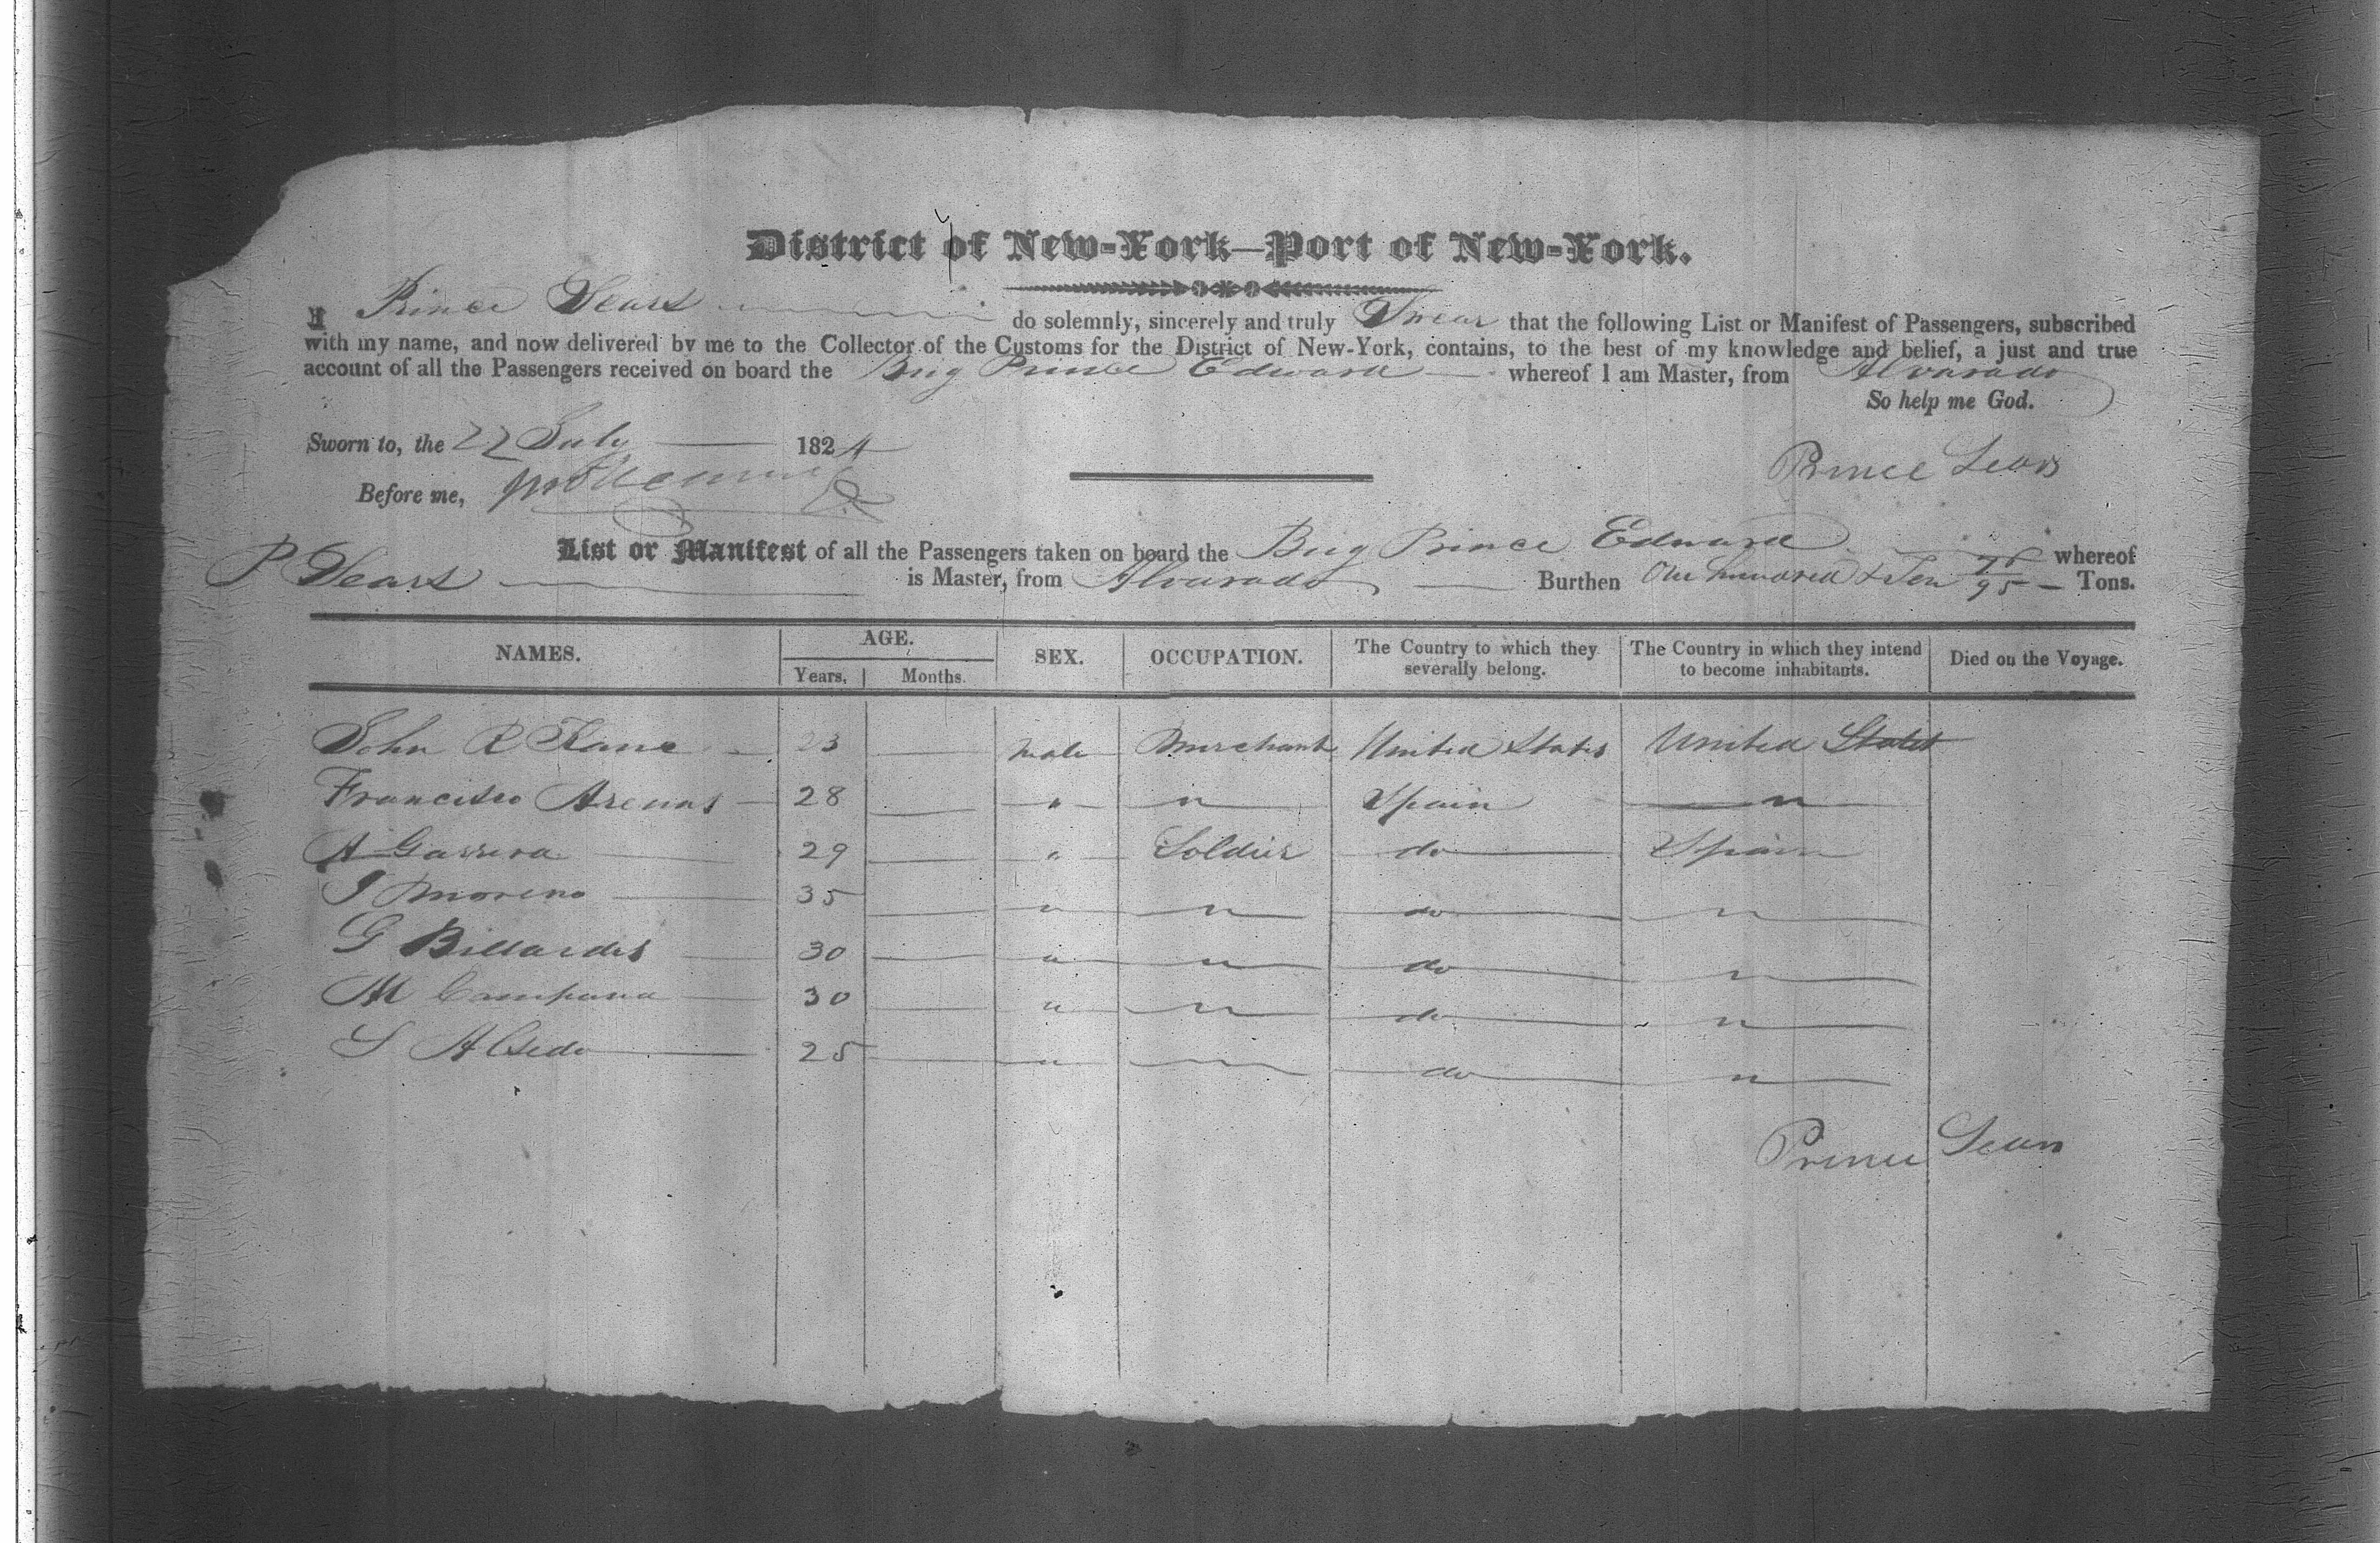 District of New-York—Port of New-York.
I Prince Sears do solemnly, sincerely and truly Swear that the following List or Manifest of Passengers, subscribed
with my name, and now delivered by me to the Collector of the Customs for the District of New-York, contains, to the best of my knowledge and belief, a just and true
account of all the Passengers received on board the Brig Prince Edward whereof I am Master, from Alvarado
So help me God.
Sworn to, the 22 July 1824
Prince Sears
Before me,
List or Manifest of all the Passengers taken on board the Brig Prince Edward whereof
P Sears is Master, from Alvarado Burthen One hundred & Ten 76/95 Tons.
NAMES. AGE. SEX. OCCUPATION. The Country to which they severally belong. The Country in which they intend to become inhabitants. Died on the Voyage.
Years, Months.
John R Kane 23 male Merchant United States United States
Francisco Arenas 28 " " Spain "
A Garrera 29 " Soldier do Spain
J Moreno 35 " " do "
G Billardes 30 " " do "
M Campana 30 " " do "
S 25 " " do "
Prince Sears